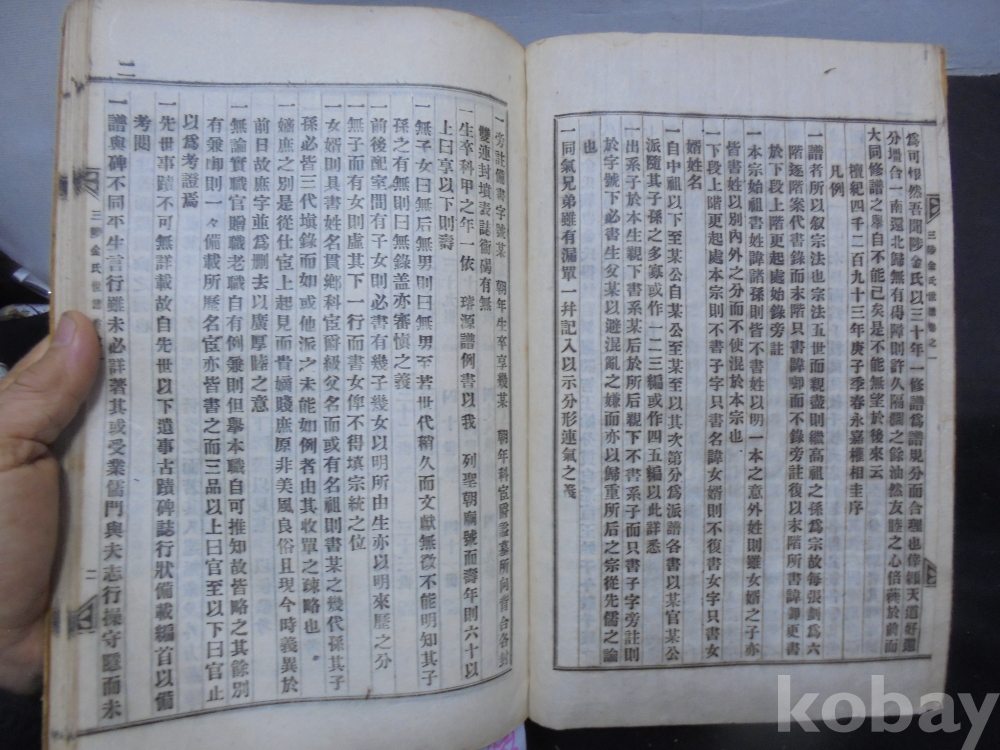 爲可悍然吾聞陟金氏以三十年一修譜爲譜規分而合理也倖經天道好還
分壇合一南還北歸無有碍障則許久隔闊之餘油然友睦之心倍蓰於前而
大同修譜之擧自不能已矣是不能無望於後來云
檀紀四千二百九十三年庚子季春永嘉權相圭序
凡例
一譜者所以叙宗法也宗法五世而親盡則繼高祖之孫爲宗故每張劃爲六
階逐階案代書錄而末階只書諱卿而不錄旁註復以末階所書諱卿更書
於下段上階更起處始錄旁註
一本宗始祖書姓諱諸孫則皆不書姓以明一本之意外姓則雖女婿之子亦
皆書姓以別內外之分而不使混於本宗也
一下段上階更起處本宗則不書子字只書名諱女婿則不復書女字只書女
婿姓名
一自中祖以下至某公自某公至某至以其次第分爲派譜各書以某官某公
派隨其子孫之多寡或作一二三編或作四五編以此詳悉
一出系子於本生親下書系某后於所后親下不書系子而只書子字旁註則
於字號下必書生父某以避混亂之嫌而亦以歸重所后之宗從先儒之論
也
一同氣兄弟雖有漏單一幷記入以示分形連氣之義
三陟金氏世譜卷之一
一旁註備書字號某朝年生卒享幾某朝年科宦爵諡墓所向背合各封
雙連封墳表誌衛碣有無
一生卒科甲之年一依 璿源譜例書以我 列聖朝廟號而壽年則六十以
上曰享以下則壽
一無子女曰無后無男則曰無男至若世代稍久而文獻無徵不能明知其子
孫之有無則曰無錄盖亦審慎之義
一前後配室間有子女則必書有幾子幾女以明所由生亦以明來歷之分
一無子而有女則處其下一行而書女俾不得塡宗統之位
一女婿則具書姓名貫鄕科宦爵級父名而或有名祖則書某之幾代孫其子
孫必皆三代塡錄而如或他派之未能如例者由其收單之疎略也
一嫡庶之別是從仕宦上起見而貴嫡賤庶原非美風良俗且現今時義異於
前日故庶字並爲刪去以廣厚睦之意
一無論實職贈職老職自有例兼則但擧本職自可推知故皆略之其餘別
有兼啣則一々備載所歷名宦亦皆書之而三品以上曰官至以下曰官止
以爲考證焉
一先世事蹟不可無詳載故自先世以下遺事古蹟碑誌行狀備載編首以備
考閱
一譜與碑不同平生言行雖未必詳著其或受業儒門與夫志行操守隱而未
三陟金氏世譜
二
二
kobay